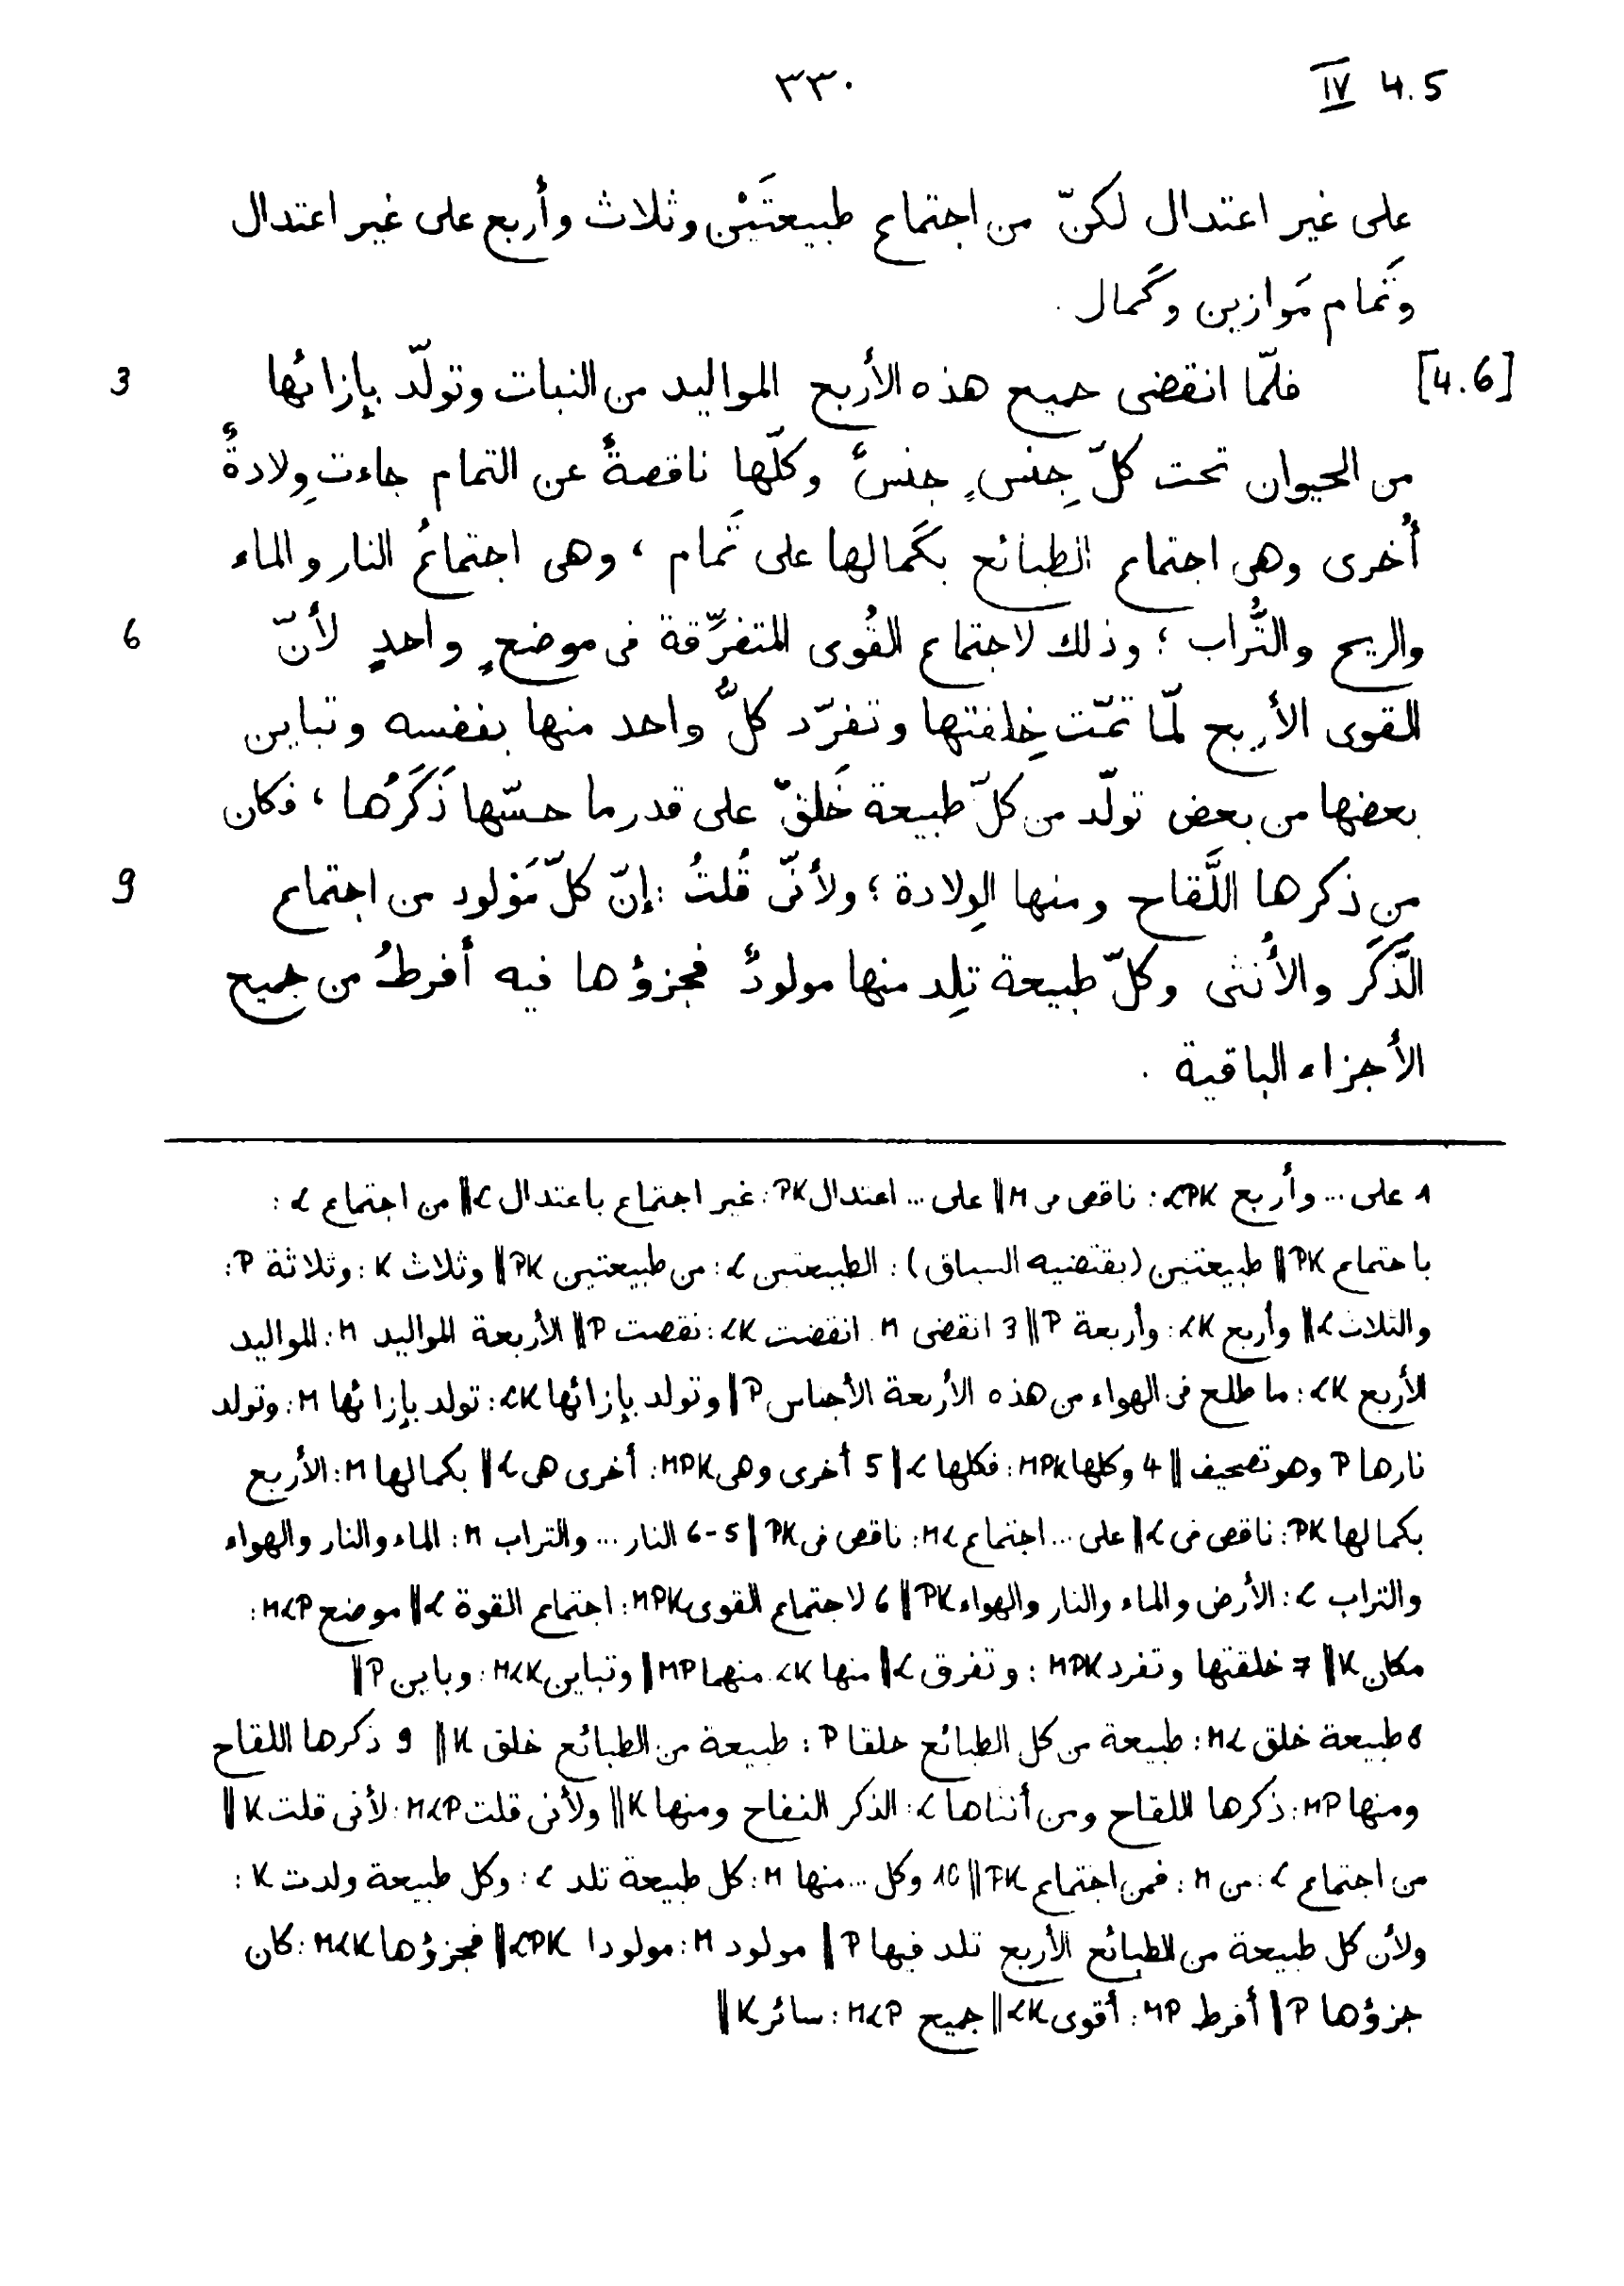 ٣٣٠ IV 4.5
على غير اعتدال لكنّ من اجتماع طبيعتَيْن وثلاث وأربع على غير اعتدال
وتَمام مَوازين وكَمال .
[4.6] فلمّا انقضى جميع هذه الأربع المواليد من النبات وتولّد بإزائها 3
من الحيوان تحت كلّ جِنسٍ جنسٌ وكلّها ناقصةٌ عن التمام جاءت وِلادةٌ
أُخرى وهى اجتماع الطبائع بكَمالها على تَمام ، وهى اجتماعُ النار والماء
والريح والتُّراب ؛ وذلك لاجتماع القُوى المتفرِّقة فى موضعٍ واحدٍ لأنّ 6
القوى الأربع لمّا تمّت خِلقتها وتفرّد كلُّ واحد منها بنفسه وتباين
بعضها من بعض تولّد من كلّ طبيعة خَلقٌ على قدر ما حسّها ذَكَرُها ، فكان
من ذكرها اللَّقاح ومنها الوِلادة ؛ ولأنّى قُلتُ : إنّ كلّ مَوْلود من اجتماع 9
الذَّكَر والأُنثى وكلّ طبيعة تلِد منها مولودٌ فجزؤها فيه أفرطُ من جميع
الأجزاء الباقية .
1 على ... وأربع LPK : ناقص من M || على ... اعتدال PK : غير اجتماع باعتدال L || من اجتماع L :
باجتماع PK || طبيعتين (يقتضيه السياق) : الطبيعتين L : من طبيعتين PK || وثلاث K : وثلاثة P :
والثلاث L || وأربع LK : وأربعة P || 3 انقضى M : انقضت LK : نقصت P || الأربعة المواليد M : المواليد
الأربع LK : ما طلع فى الهواء من هذه الأربعة الأجناس P || وتولد بإزائها LK : تولد بإزائها M : وتولد
نارها P وهو تصحيف || 4 وكلها MPK : فكلها L || 5 أخرى وهى MPK : أخرى هى L || بكمالها M : الأربع
بكمالها PK : ناقص فى L || على ... اجتماع ML : ناقص فى PK || 5-6 النار ... والتراب M : الماء والنار والهواء
والتراب L : الأرض والماء والنار والهواء PK || 6 لاجتماع القوى MPK : اجتماع القوة L || موضع MLP :
مكان K || 7 خلقتها وتفرد MPK : وتفرق L || منها LK : منهما MP || وتباين MLK : وباين P ||
8 طبيعة خلق ML : طبيعة من كل الطبائع خلقا P : طبيعة من الطبائع خلق K || 9 ذكرها اللقاح
ومنها MP : ذكرها اللقاح ومن أنثاها L : الذكر النفاح ومنها K || ولأنى قلت MLP : لأنى قلت K ||
من اجتماع L : من M : فمن اجتماع PK || 10 وكل ... منها M : كل طبيعة تلد L : وكل طبيعة ولدت K :
ولأن كل طبيعة من الطبائع الأربع تلد فيها P || مولود M : مولودا LPK || فجزؤها MLK : كان
جزؤها P || أفرط MP : أقوى LK || جميع MLP : سائر K ||